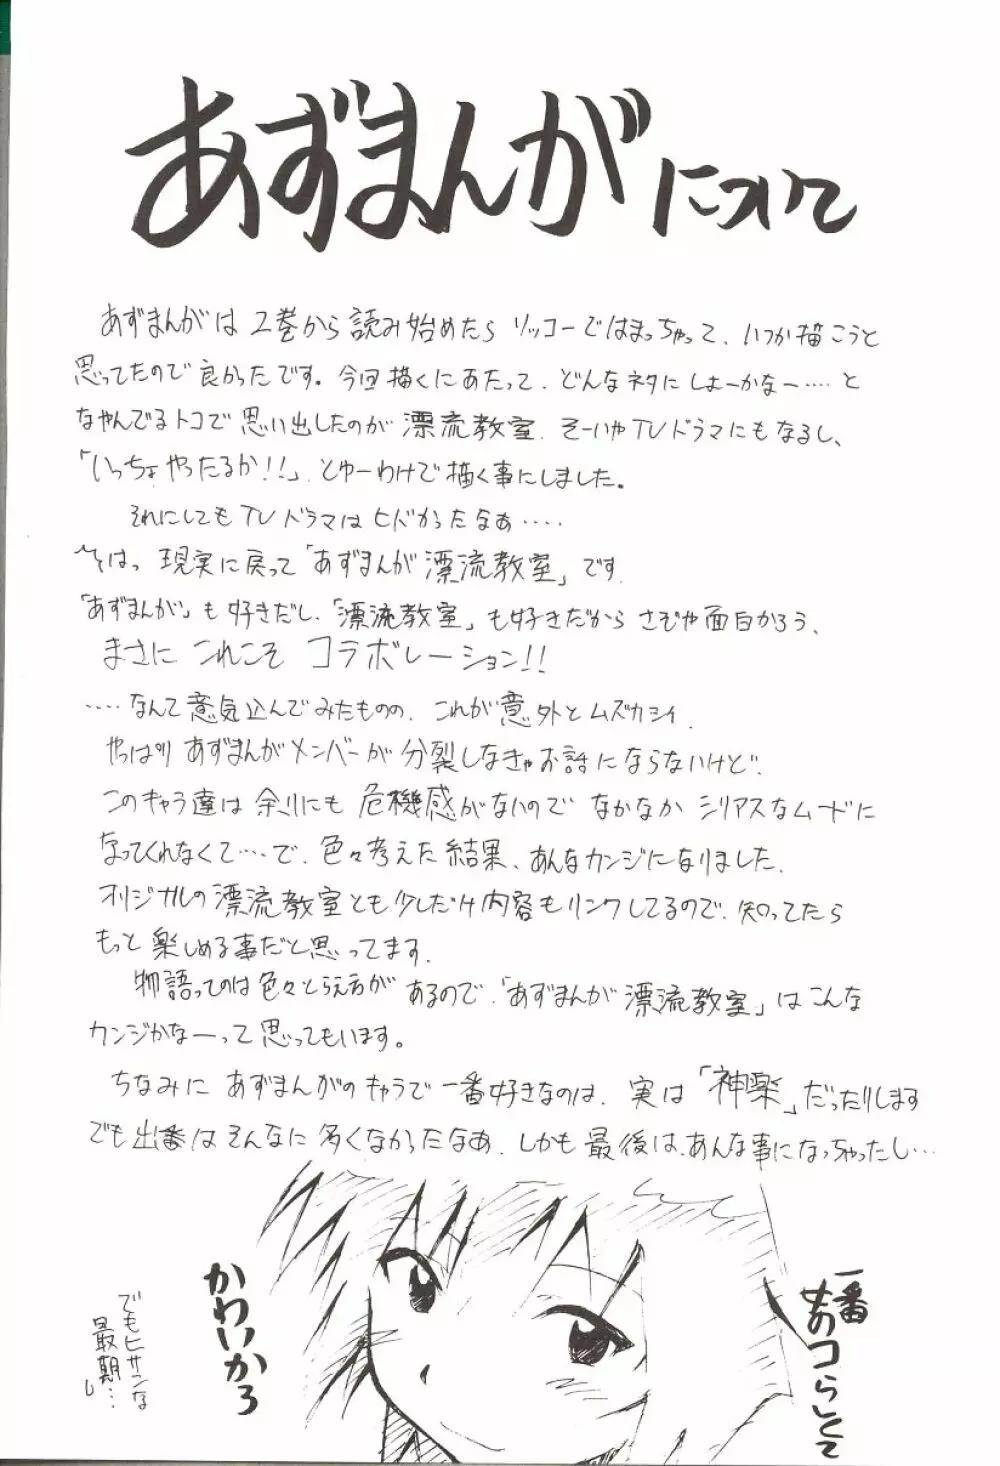 あずまんがについて
あずまんがは2巻から読み始めたら リッコーではまっちゃって、いつか描こうと
思ってたので良かったです。今回描くにあたって、どんなネタにしよーかなー‥‥と
なやんでるトコで思い出したのが漂流教室、そーいやTVドラマにもなるし、
「いっちょやったるか!!」とゆーわけで描く事にしました。
それにしてもTVドラマはヒドかったなぁ‥‥
現実に戻って「あずまんが漂流教室」です
「あずまんが」も好きだし、「漂流教室」も好きだからさぞや面白かろう、
まさにこれこそコラボレーション!!
‥‥なんて意気込んでみたものの、これが意外とムズカシイ、
やっぱりあずまんがメンバーが分裂しなきゃお話にならないけど、
このキャラ達は余りにも危機感がないのでなかなかシリアスなムードに
なってくれなくて‥‥で、色々考えた結果、あんなカンジになりました、
オリジナルの漂流教室とも少しだけ内容もリンクしてるので、知ってたら
もっと楽しめる事だと思ってます、
物語ってのは色々とらえ方があるので、「あずまんが漂流教室」はこんな
カンジかなーって思ってもいます。
ちなみにあずまんがのキャラで一番好きなのは、実は「神楽」だったりします
でも出番はそんなに多くなかったなあ、しかも最後は、あんな事になっちゃったし…
一番
オコらしくて
かわいかろ
でもヒサンな
最期…し